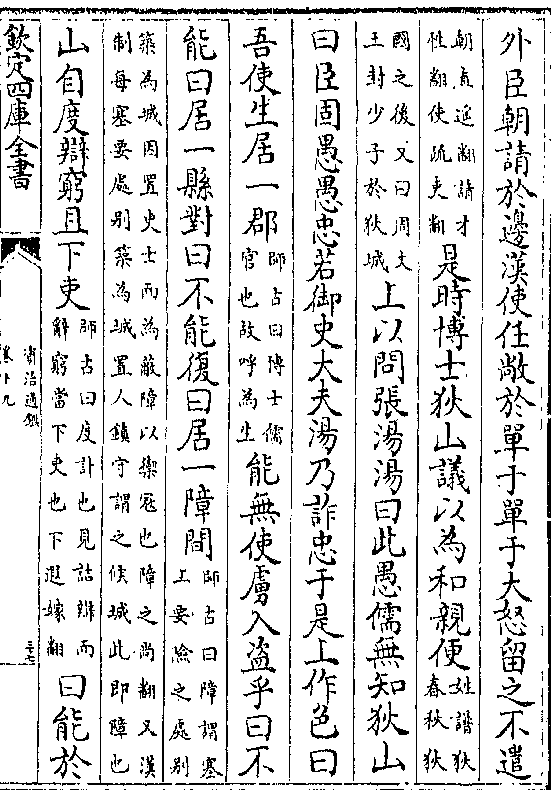 外臣朝請於邊漢使任敞於單于單于大怒留之不遣
朝直遥翻請才性翻使疏吏翻是時博士狄山議以為和親便姓譜狄春秋狄
國之後又曰周文王封少子於狄城上以問張湯湯曰此愚儒無知狄山
曰臣固愚愚忠若御史大夫湯乃詐忠于是上作色曰
吾使生居一郡師古曰博士儒官也故呼為生能無使虜入盗乎曰不
能曰居一縣對曰不能復曰居一障間師古曰障謂塞上要險之處别
築為城因置吏士而為蔽障以禦寇也障之尚翻又漢制每塞要處别築為城置人鎮守謂之候城此即障也
山自度辯窮且下吏師古曰度計也見詰辯而辭窮當下吏也下遐嫁翻曰能於
欽定四庫全書
資治通鑑
卷十九